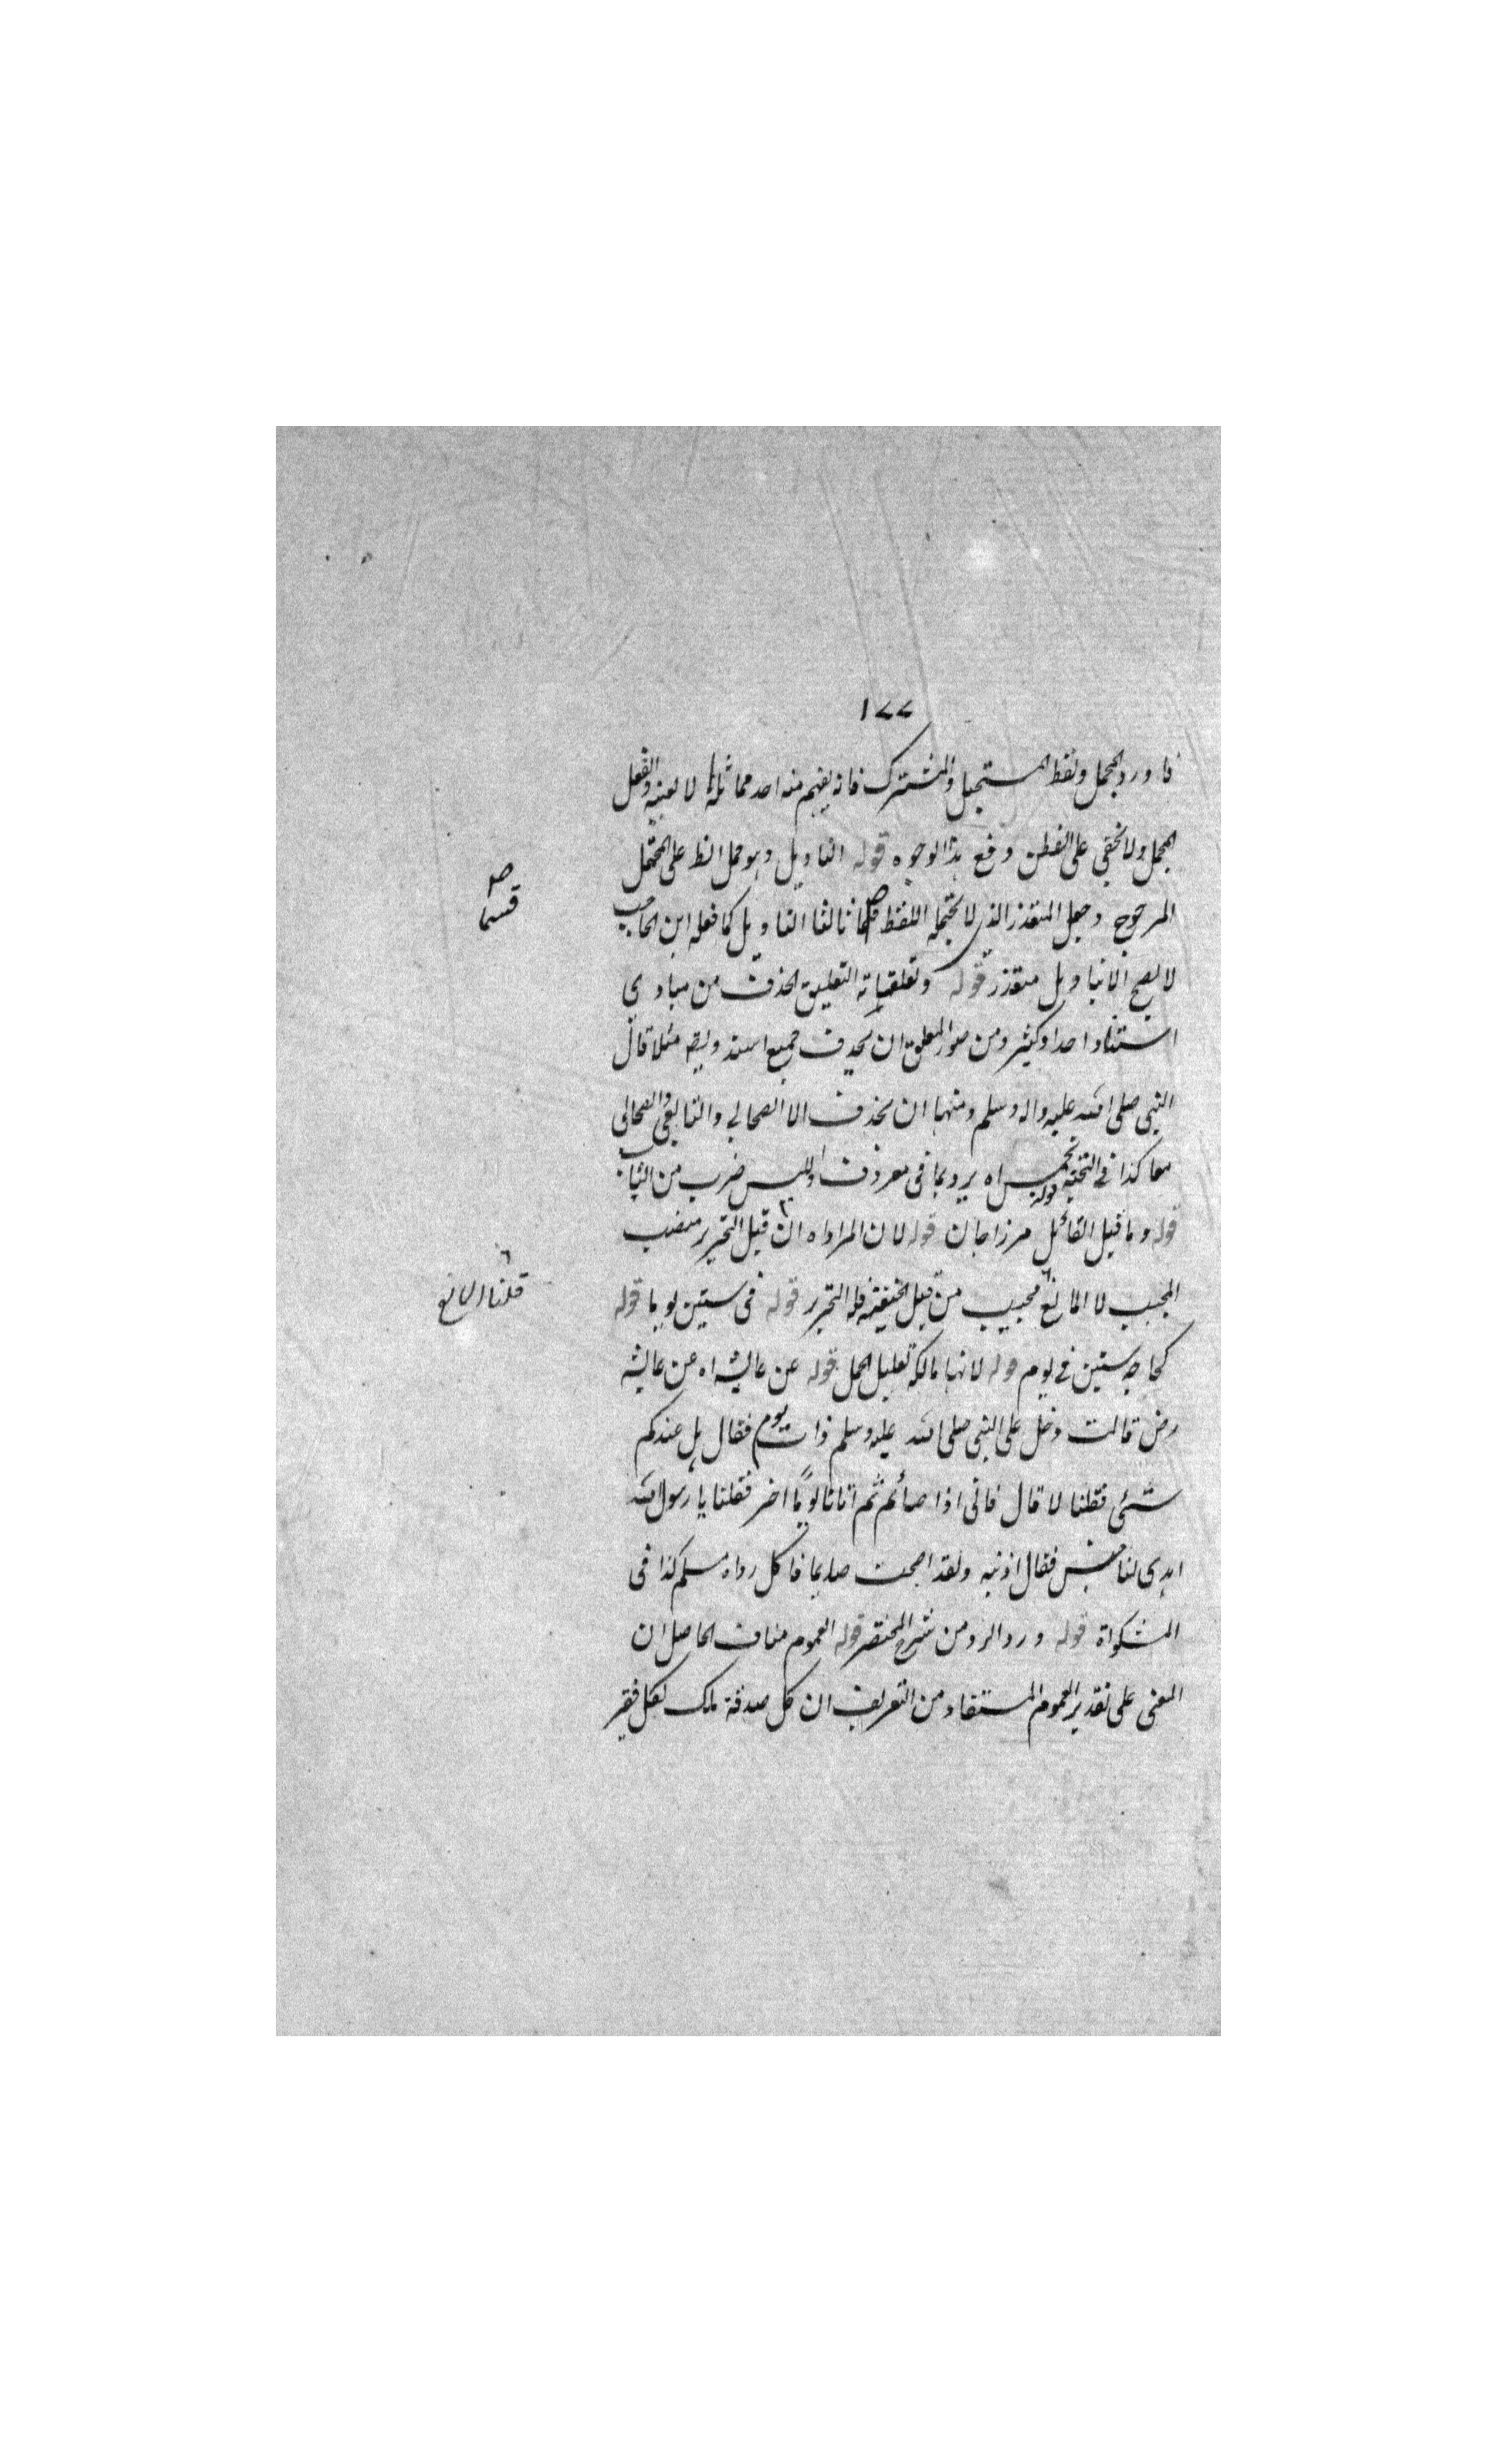 ١٧٧
فاورد المجمل ولفظ المستحيل والمشترك فانه يفهم منه احد محامله لا بعينه والفعل
المجمل ولا يخفى على الفطن دفع هذا الوجوه قوله التاويل وهو حمل الظ على المحتمل
المرجوح وجعل المتعذر الذي لا يحتمله اللفظ قسما ثالثا التاويل كما فعله ابن الحاجب
لا يصح الا بتاويل متعذر قوله وتعلقياته التعليق الحذف من مبادى
استناد احدا وكثير ومن صور المعلق ان يحذف جميع السند ويقه مثلا قال
النبي صلى الله عليه واله وسلم ومنها ان يحذف الا الصحابي والتابعي والصحابي
معا كذا في النخبة قوله بخميس اه يرد بما في معروف اولبيس ضرب من الثياب
قوله وما قيل القائل مرزاجان قوله لان المراد اه ان قيل التحرير منصب
المجيب لا المانع مجيب من قبل الحنفية فله التحرير قوله في ستين يوما قوله
كحاجه ستين في يوم قوله لانها مالكة تعليل الحمل قوله عن عايشه اه عن عايشه
رض قالت دخل على النبي صلى الله عليه وسلم ذات يوم فقال هل عندكم
شئى فقلنا لا قال فانى اذا صائم ثم اتانا يوما اخر فقلنا يا رسول الله
اهدى لنا حيس فقال ادنيه ولقد اصبحت صايما فاكل رواه مسلم كذا في
المشكواة قوله ورد الرد من شرح المختصر قوله العموم مناف الحاصل ان
المعنى على تقدير العموم المستفاد من التعريف ان كل صدقة ملك لكل فقير
صه
قسما
٦
قلنا المانع